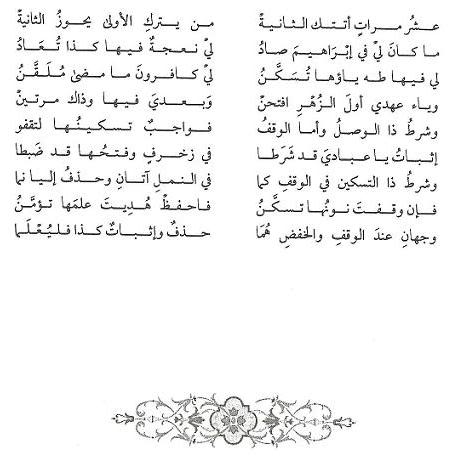 عشرُ مراتٍ أتتك الثانيةْ من يتركِ الأولىٰ يحوزُ الثانيةْ
ما كانَ ليْ في إبْرَاهيمَ صادُ ليْ نعجةٌ فيها كذا تُعَادُ
لي فيها طه ياؤها تُسَكَّنُ ليْ كافرونَ ما مضىٰ مُلَقَّنُ
وياء عهدي أولَ الزُهْرِ افتحنْ وَبعديَ فيها وذاك مرتينْ
وشرطُ ذا الوصلُ وأما الوقفُ فواجبٌ تسكينُها لتقفو
إثباتُ يا عباديَ قد شَرَطا في زخرفٍ وفتحُها قد ضبطا
وشرطُ ذا التسكين في الوقفِ كما في النملِ آتانِ وحذفُ إليا نما
فإن وقفتَ نونُها تسكنُ فاحفظْ هُدِيتَ علمَها تؤمَّنُ
وجهانِ عندَ الوقفِ والخفضِ هُمَا حذفٌ وإثباتٌ كذا فليُعْلَما